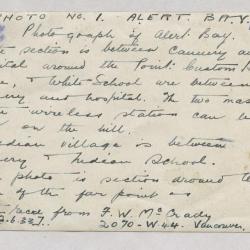 PHOTO NO. 1. ALERT BAY.
Photograph of Alert Bay.
section is between Cannery a
ital around the Point. Custom H
e, & White School are between
ery and hospital. The two mas
wireless stations can b
on the hill.
dian village is between
ery & Indian School.
photo is section around t
of the far point as
from F. W. McCrady
2.6.337. 2070 - W. 44. Vancouver